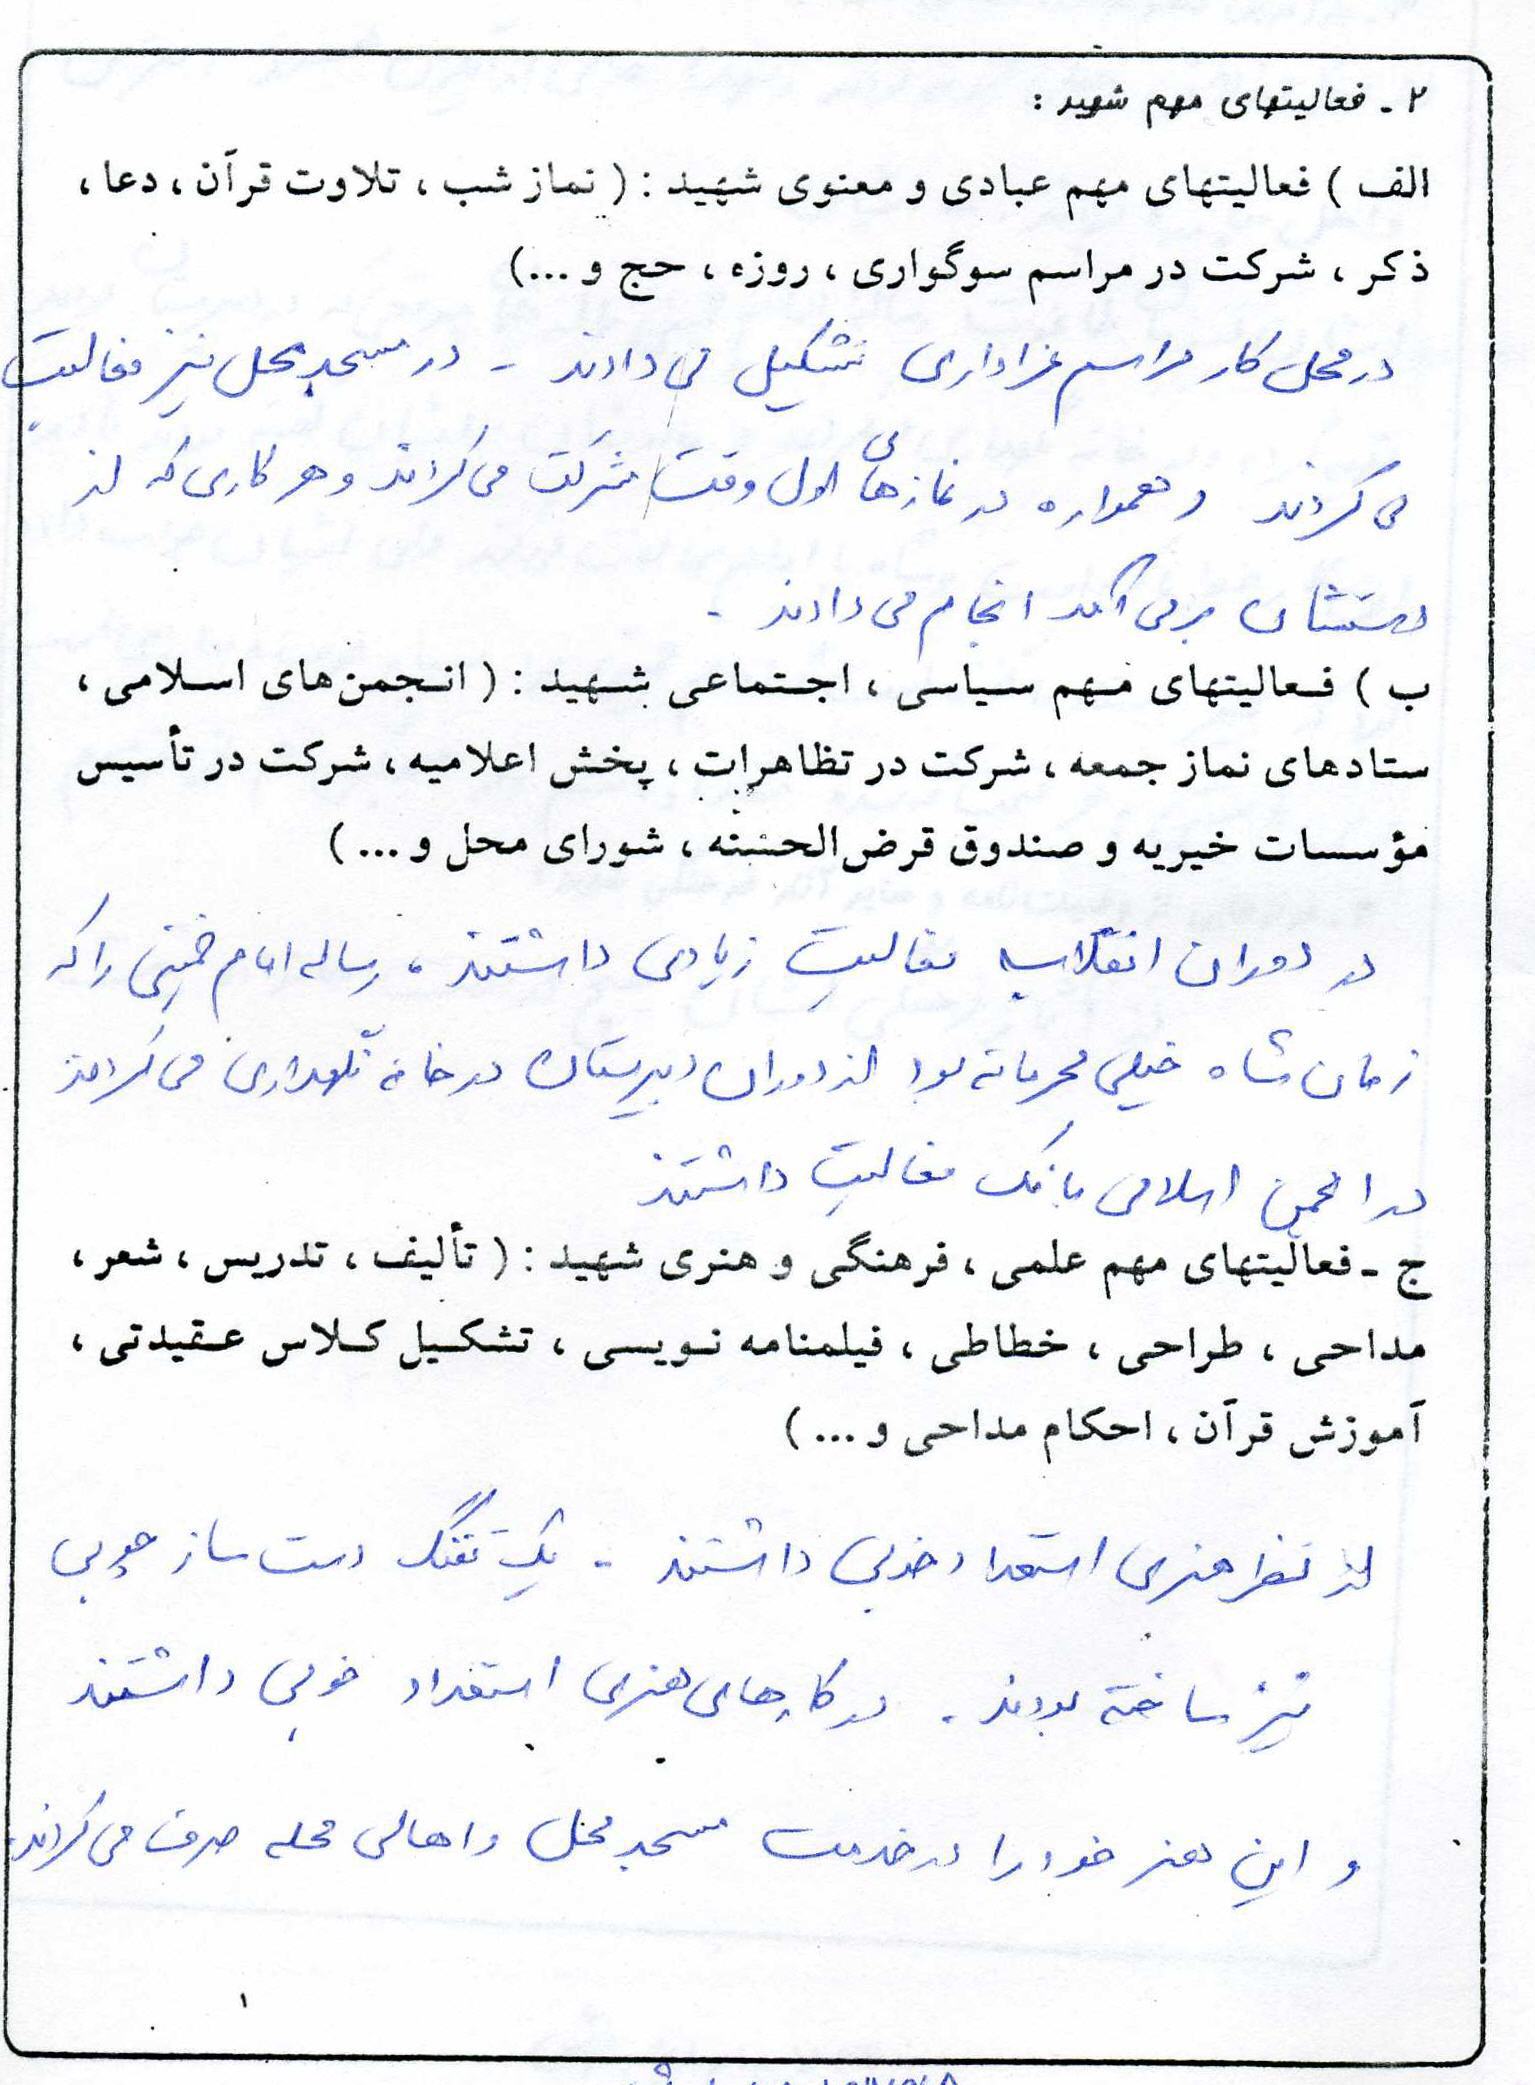 ۲ ـ فعالیتهای مهم شهید :
الف ) فعالیتهای مهم عبادی و معنوی شهید : ( نماز شب ، تلاوت قرآن ، دعا ،
ذکر ، شرکت در مراسم سوگواری ، روزه ، حج و ...)
در محل کار مراسم عزاداری تشکیل می دادند - در مسجد محل نیز فعالیت
می کردند و همواره در نمازهای اول وقت شرکت می کردند و هر کاری که از
دستشان برمی آمد انجام می دادند .
ب ) فعالیتهای مهم سیاسی ، اجتماعی شهید : ( انجمن های اسلامی ،
ستادهای نماز جمعه ، شرکت در تظاهرات ، پخش اعلامیه ، شرکت در تأسیس
مؤسسات خیریه و صندوق قرض الحسنه ، شورای محل و ... )
در دوران انقلاب فعالیت زیادی داشتند . رساله امام خمینی را که
زمان شاه خیلی محرمانه بود از دوران دبیرستان در خانه نگهداری می کردند
در انجمن اسلامی بانک فعالیت داشتند
ج ـ فعالیتهای مهم علمی ، فرهنگی و هنری شهید : ( تألیف ، تدریس ، شعر ،
مداحی ، طراحی ، خطاطی ، فیلمنامه نویسی ، تشکیل کلاس عقیدتی ،
آموزش قرآن ، احکام مداحی و ... )
از نظر هنری استعداد خوبی داشتند - یک تفنگ دست ساز چوبی
نیز ساخته بودند . در کارهای هنری استعداد خوبی داشتند
و این هنر خود را در خدمت مسجد محل و اهالی محله صرف می کردند.